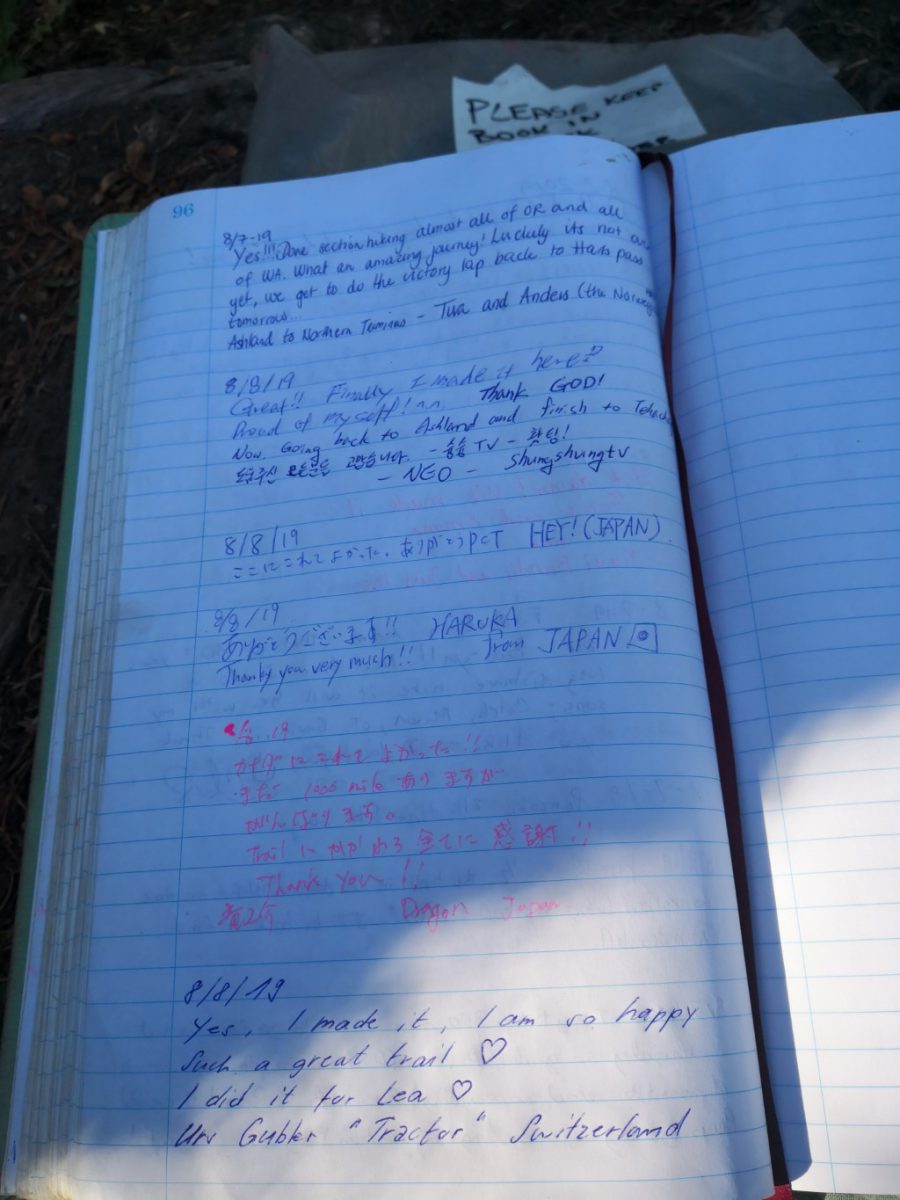 PLEASE KEEP
BOOK IN
96
8/7-19
Yes!!! Done section hiking almost all of OR and all
of WA. What an amazing journey! Luckuly its not
yet, we get to do the victory lap back to Harts pass
tomorrow...
Ashland to Northern Terminus - Tua and Anders (the
8/8/19
Great!! Finally I made it here
Proud of myself! ^^ Thank GOD!
Now, Going back to Ashland and finish to
고맙습니다. - 슝슝 TV - 화팅!
- NEO - Shungshungtv
8/8/19
ここにこれてよかった。ありがとうPCT HEY! (JAPAN)
8/8/19
ありがとうございます!! HARUKA
Thank you very much!! from JAPAN
.19
にこれてよかった!!
まだ 1000 mile ありますが
がんばります。
Trail に かかわる 全てに 感謝!!
Thank you!!
Dragon Japan
8/8/19
Yes, I made it, I am so happy
Such a great trail ♡
I did it for Lea ♡
Urs Gubler "Tractor" Switzerland